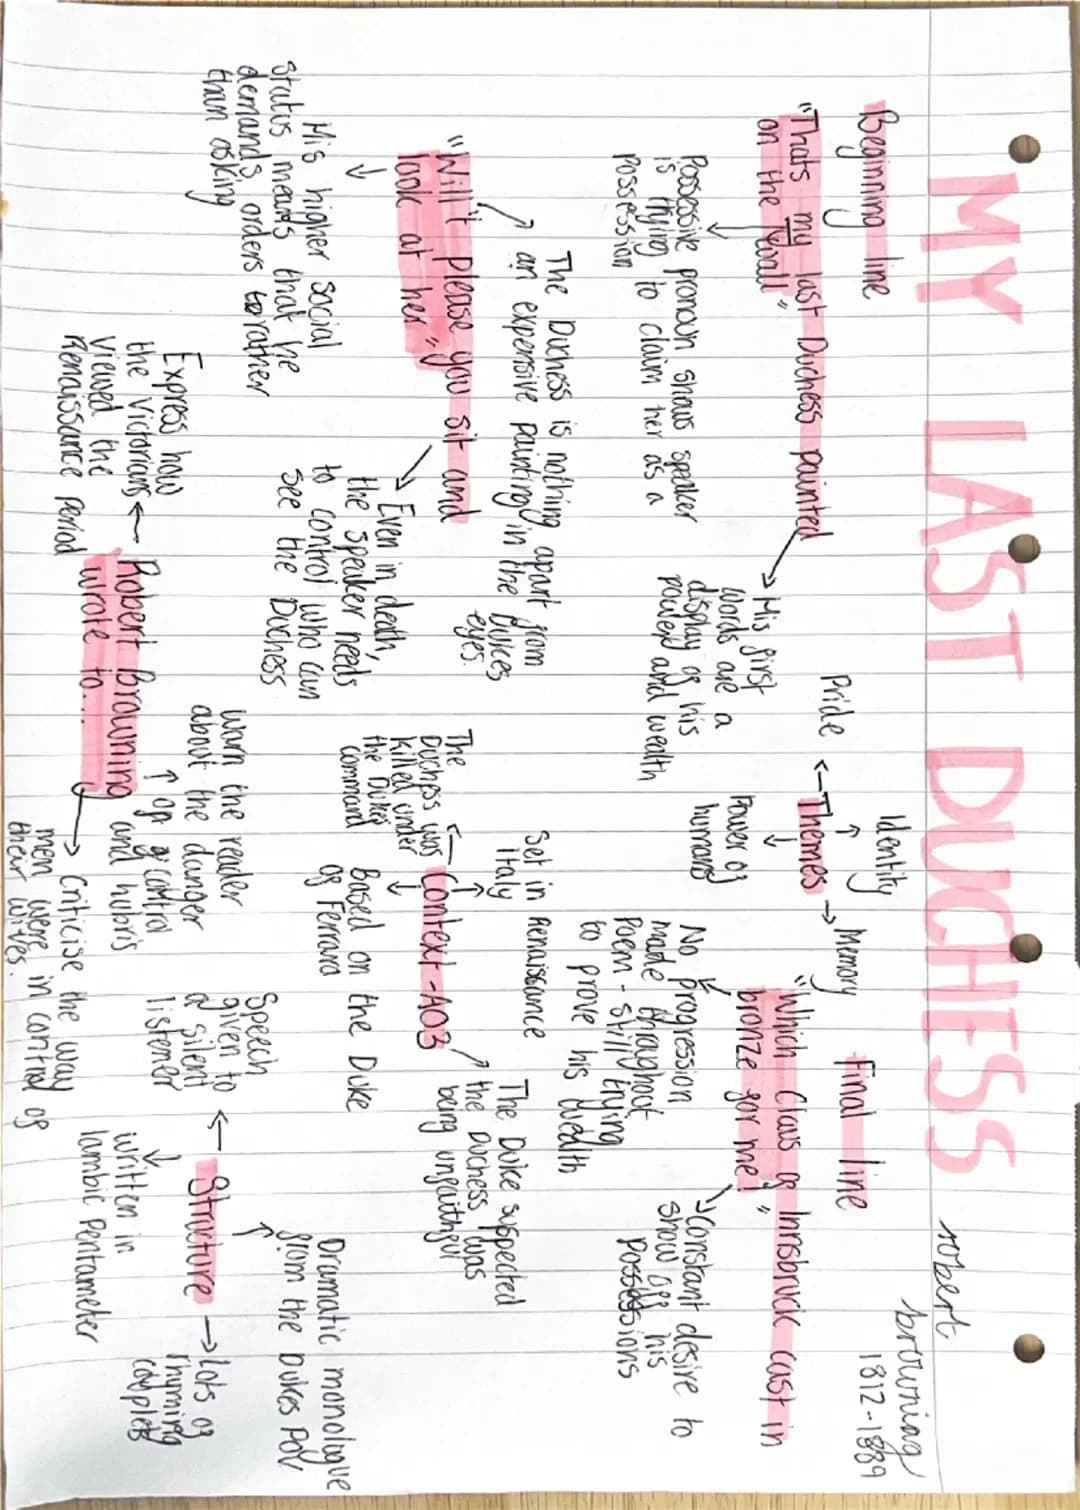 MY LAST DUCHESS
robert
browning
1812-1889
Beginning line
"Thats my last Duchess painted
on the wall"
Possessive pronoun shows speaker
is trying to claim her as a
possession
His first
words are a
display of his
power and wealth
Identity
Pride
Themes
Memory
Power of
humans
Final line
"Which Claus of Innsbruck cast in
bronze for me!"
No progression
made throughout
poem - still trying
to prove his wealth
Constant desire to
show off his
possessions
The Duchess is nothing apart from
an expensive painting in the Dukes
eyes.
"Will't please you sit and
look at her"
His higher social
status means that he
demands orders rather
than asking
Even in death,
the speaker needs
to control who can
see the Duchess
Set in Renaissance
Italy
The
Duchess was
killed under
the Dukes
command
Context - AO3
Based on the Duke
of Ferrara
The Duke suspected
the Duchess was
being unfaithful
Express how
the Victorians
viewed the
Renaissance period
Robert Browning
wrote to....
warn the reader
about the danger
of control
and hubris
Criticise the way
men were in control of
their wives.
Speech
given to
a silent
listener
Structure
Dramatic monologue
from the Dukes POV
written in
Iambic pentameter
Lots of
rhyming
couplets